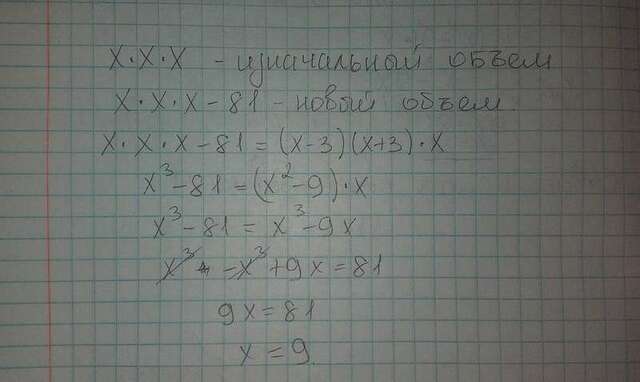 x·x·x - изначальный объем
x·x·x-81 - новый объем.
x·x·x-81=(x-3)(x+3)·x
x³-81=(x²-9)·x
x³-81=x³-9x
x³ -x³+9x=81
9x=81
x=9.